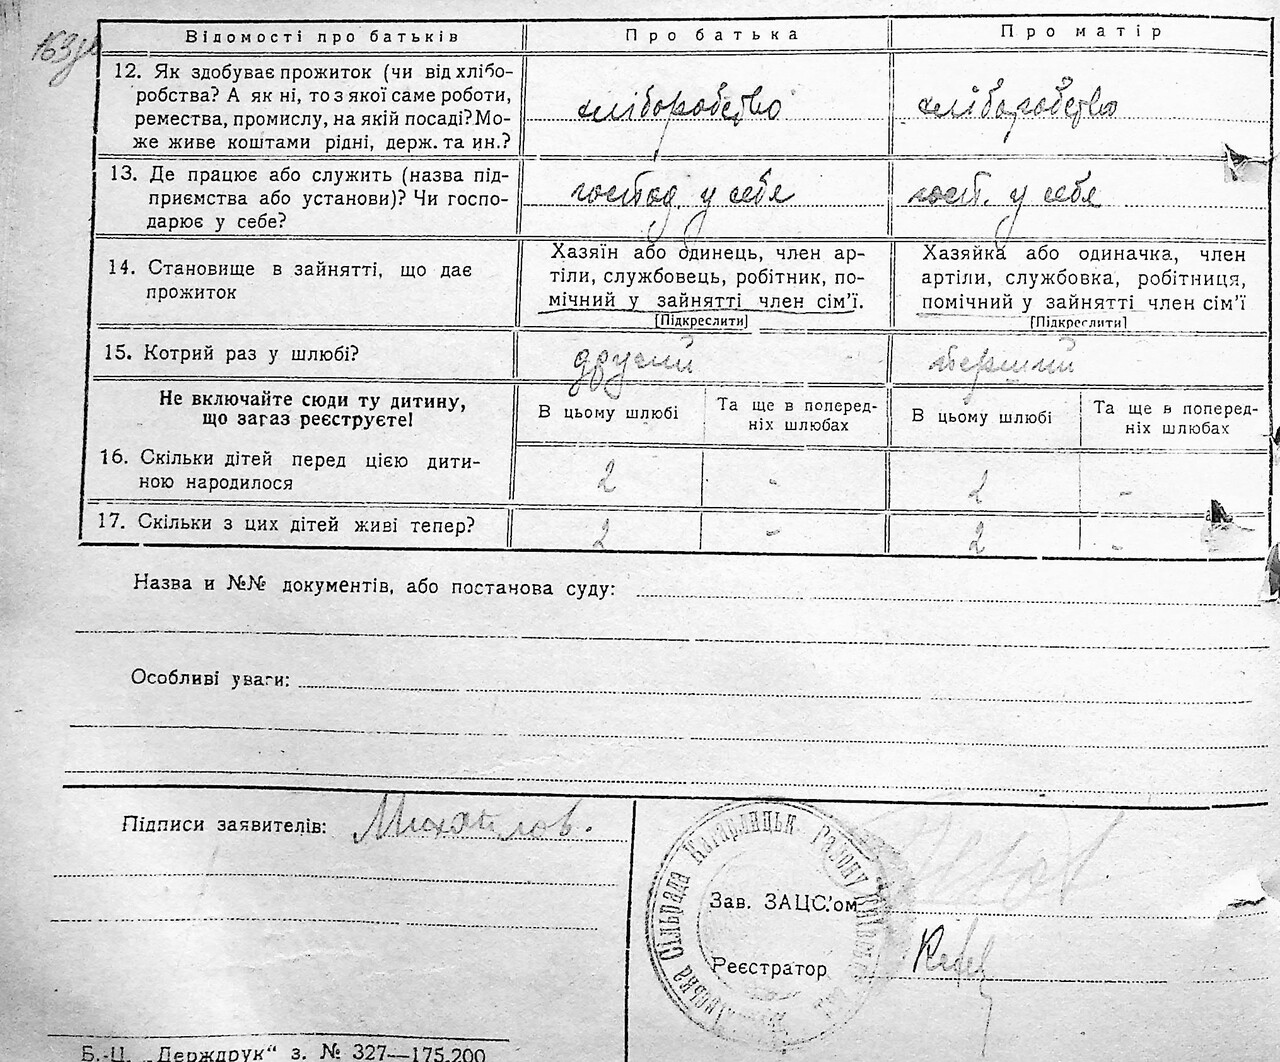 163
Відомості про батьків
Про батька
Про матір
12. Як здобуває прожиток (чи від хлібо-
робства? А як ні, то з якої саме роботи,
ремества, промислу, на якій посаді? Мо-
же живе коштами рідні, держ. та ин.?
хліборобство
хліборобство
13. Де працює або служить (назва під-
приємства або установи)? Чи госпо-
дарює у себе?
господ. у себе
госп. у себе
14. Становище в зайнятті, що дає
прожиток
Хазяїн або одинець, член ар-
тіли, службовець, робітник, по-
мічний у зайнятті член сім’ї.
[Підкреслити]
Хазяйка або одиначка, член
артіли, службовка, робітниця,
помічний у зайнятті член сім’ї
[Підкреслити]
15. Котрий раз у шлюбі?
другий
перший
Не включайте сюди ту дитину,
що загаз реєструєте!
В цьому шлюбі
Та ще в поперед-
ніх шлюбах
В цьому шлюбі
Та ще в поперед-
ніх шлюбах
16. Скільки дітей перед цією дити-
ною народилося
2
-
2
-
17. Скільки з цих дітей живі тепер?
2
-
2
-
Назва и №№ документів, або постанова суду:
Особливі уваги:
Підписи заявителів: Михайлов.
Сільрада Кагарлицьк. Району
Зав. ЗАЦС’ом
Реєстратор
Б.-Ц. „Держдрук“ з. № 327—175.200